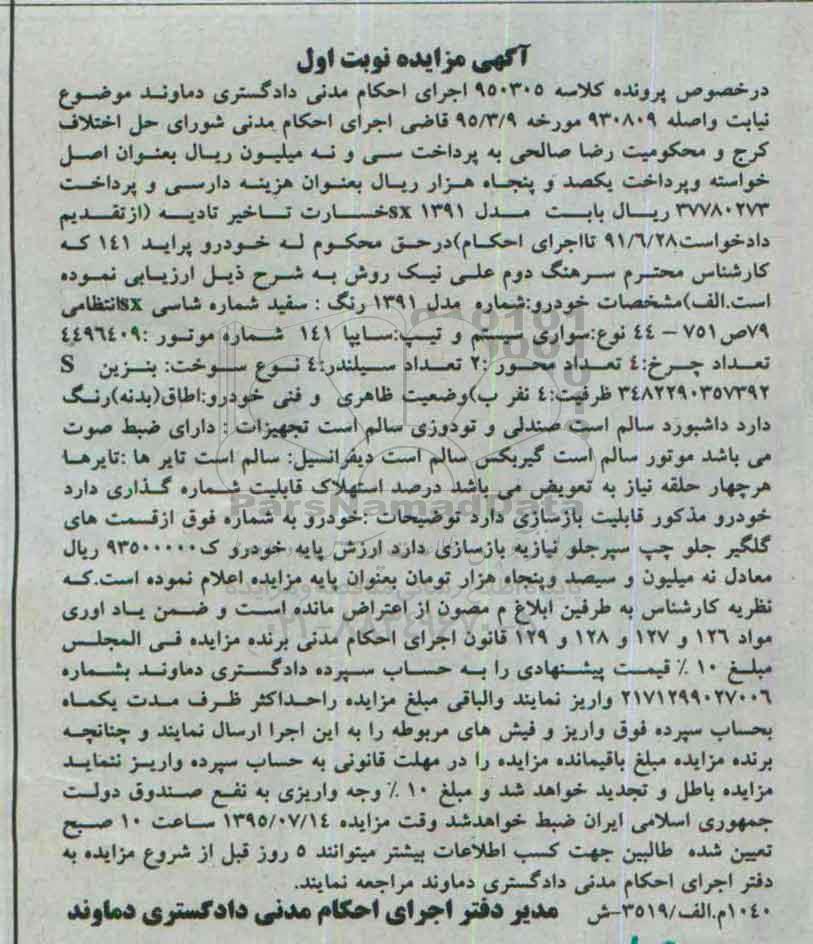 آگهی مزایده نوبت اول
درخصوص پرونده کلاسه ۹۵۰۳۰۵ اجرای احکام مدنی دادگستری دماوند موضوع
نیابت واصله ۹۳۰۸۰۹ مورخه ۹۵/۳/۹ قاضی اجرای احکام مدنی شورای حل اختلاف
کرج و محکومیت رضا صالحی به پرداخت سی و نه میلیون ریال بعنوان اصل
خواسته وپرداخت یکصد و پنجاه هزار ریال بعنوان هزینه دارسی و پرداخت
۳۷۷۸۰۲۷۳ ریال بابت مدل ۱۳۹۱ sxخسارت تاخیر تادیه (ازتقدیم
دادخواست۹۱/۶/۲۸ تااجرای احکام)درحق محکوم له خودرو پراید ۱۴۱ که
کارشناس محترم سرهنگ دوم علی نیک روش به شرح ذیل ارزیابی نموده
است.الف)مشخصات خودرو:شماره مدل ۱۳۹۱ رنگ : سفید شماره شاسی sxانتظامی
۷۹ص۷۵۱ – ۴۴ نوع:سواری سیستم و تیپ:سایپا ۱۴۱ شماره موتور :۴٤۹۶٤۰۹
تعداد چرخ:٤ تعداد محور :۲ تعداد سیلندر:٤ نوع سوخت: بنزین S
۳٤۸۲۲۹۰۳۵۷۳۹۲ ظرفیت:٤ نفر ب)وضعیت ظاهری و فنی خودرو:اطاق(بدنه)رنگ
دارد داشبورد سالم است صندلی و تودوزی سالم است تجهیزات : دارای ضبط صوت
می باشد موتور سالم است گیربکس سالم است دیفرانسیل: سالم است تایر ها :تایرها
هرچهار حلقه نیاز به تعویض می باشد درصد استهلاک قابلیت شماره گذاری دارد
خودرو مذکور قابلیت بازسازی دارد توضیحات :خودرو به شماره فوق ازقسمت های
گلگیر جلو چپ سپرجلو نیازبه بازسازی دارد ارزش پایه خودرو ک۹۳۵۰۰۰۰۰ ریال
معادل نه میلیون و سیصد وپنجاه هزار تومان بعنوان پایه مزایده اعلام نموده است.که
نظریه کارشناس به طرفین ابلاغ م مصون از اعتراض مانده است و ضمن یاد اوری
مواد ۱۲۶ و ۱۲۷ و ۱۲۸ و ۱۲۹ قانون اجرای احکام مدنی برنده مزایده فی المجلس
مبلغ ۱۰ ٪ قیمت پیشنهادی را به حساب سپرده دادگستری دماوند بشماره
۲۱۷۱۲۹۹۰۲۷۰۰۶ واریز نمایند والباقی مبلغ مزایده راحداکثر ظرف مدت یکماه
بحساب سپرده فوق واریز و فیش های مربوطه را به این اجرا ارسال نمایند و چنانچه
برنده مزایده مبلغ باقیمانده مزایده را در مهلت قانونی به حساب سپرده واریز ننماید
مزایده باطل و تجدید خواهد شد و مبلغ ۱۰ ٪ وجه واریزی به نفع صندوق دولت
جمهوری اسلامی ایران ضبط خواهدشد وقت مزایده ۱۳۹۵/۰۷/۱۴ ساعت ۱۰ صبح
تعیین شده طالبین جهت کسب اطلاعات بیشتر میتوانند ۵ روز قبل از شروع مزایده به
دفتر اجرای احکام مدنی دادگستری دماوند مراجعه نمایند.
۱۰۴۰م.الف/۳۵۱۹-ش مدیر دفتر اجرای احکام مدنی دادگستری دماوند
ParsNamadData